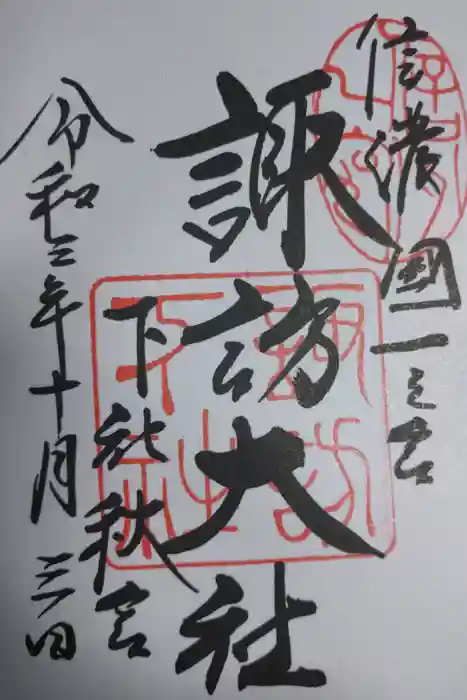 信濃國一之宮
諏訪大社
下社秋宮
令和三年十月三日